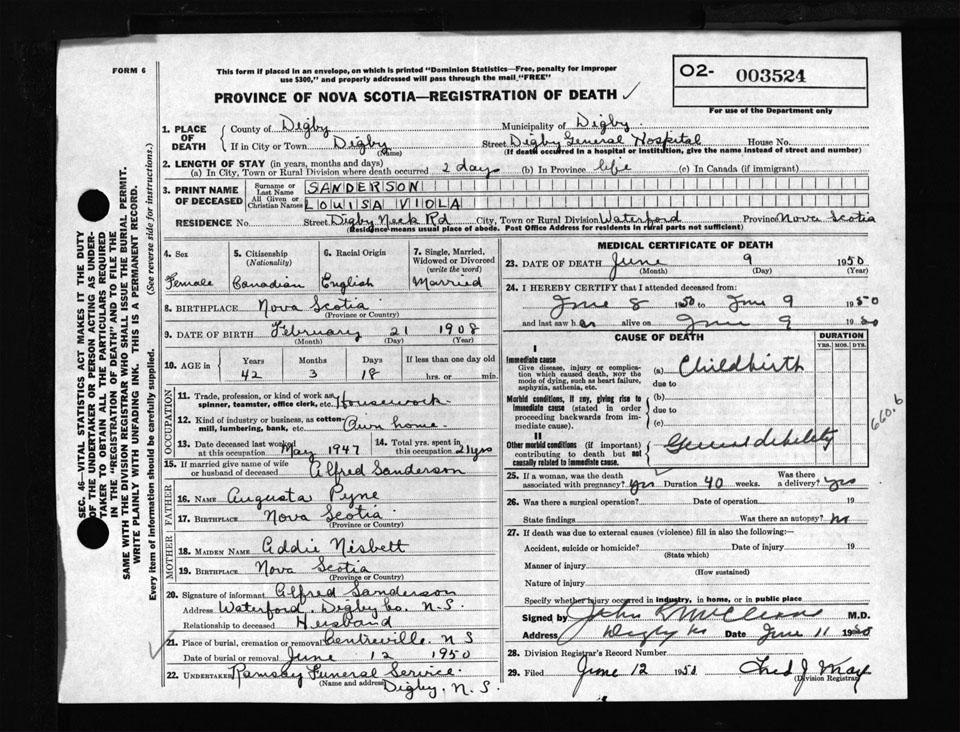 FORM 6
This form if placed in an envelope, on which is printed "Dominion Statistics—Free, penalty for improper
use $300," and properly addressed will pass through the mail "FREE"
O2- 003524
For use of the Department only
PROVINCE OF NOVA SCOTIA—REGISTRATION OF DEATH
1. PLACE OF DEATH { County of Digby Municipality of Digby
If in City or Town Digby (Name) Street Digby General Hospital House No.
(If death occurred in a hospital or institution, give the name instead of street and number)
2. LENGTH OF STAY (in years, months and days)
(a) In City, Town or Rural Division where death occurred 2 days (b) In Province life (c) In Canada (if immigrant)
3. PRINT NAME OF DECEASED { Surname or Last Name SANDERSON
All Given or Christian Names LOUISA VIOLA
RESIDENCE No. Street Digby Neck Rd City, Town or Rural Division Waterford Province Nova Scotia
(Residence means usual place of abode. Post Office Address for residents in rural parts not sufficient)
4. Sex 5. Citizenship (Nationality) 6. Racial Origin 7. Single, Married, Widowed or Divorced (write the word)
Female Canadian English Married
8. BIRTHPLACE Nova Scotia
(Province or Country)
9. DATE OF BIRTH February 21 1908
(Month) (Day) (Year)
10. AGE in { Years Months Days If less than one day old
42 3 18 hrs. or min.
OCCUPATION
11. Trade, profession, or kind of work as spinner, teamster, office clerk, etc. Housework
12. Kind of industry or business, as cotton-mill, lumbering, bank, etc. Own home
13. Date deceased last worked at this occupation May 1947 14. Total yrs. spent in this occupation 21 yrs
15. If married give name of wife or husband of deceased Alfred Sanderson
FATHER
16. NAME Augusta Pyne
17. BIRTHPLACE Nova Scotia
(Province or Country)
MOTHER
18. MAIDEN NAME Addie Nisbett
19. BIRTHPLACE Nova Scotia
(Province or Country)
20. Signature of informant Alfred Sanderson
Address Waterford, Digby Co. N.S.
Relationship to deceased Husband
21. Place of burial, cremation or removal Centreville, N S
Date of burial or removal June 12 1950
22. UNDERTAKER Ramsay Funeral Service
(Name and address) Digby, N. S.
MEDICAL CERTIFICATE OF DEATH
23. DATE OF DEATH June 9 1950
(Month) (Day) (Year)
24. I HEREBY CERTIFY that I attended deceased from:
June 8 1950 to June 9 1950
and last saw her alive on June 9 1950
CAUSE OF DEATH DURATION
YRS. MOS. DYS.
I
Immediate cause
Give disease, injury or complication which caused death, NOT the mode of dying, such as heart failure, asphyxia, asthenia, etc.
(a) Childbirth
due to
Morbid conditions, if any, giving rise to immediate cause (stated in order proceeding backwards from immediate cause).
(b)
due to
(c)
II
Other morbid conditions (if important) contributing to death but not causally related to immediate cause.
General debility
660.6
25. If a woman, was the death associated with pregnancy? yes Duration 40 weeks. Was there a delivery? yes
26. Was there a surgical operation? Date of operation 19
State findings Was there an autopsy?
27. If death was due to external causes (violence) fill in also the following:—
Accident, suicide or homicide? Date of injury 19
(State which)
Manner of injury
(How sustained)
Nature of injury
Specify whether injury occurred in industry, in home, or in public place
Signed by M.D.
Address Date June 11 1950
28. Division Registrar's Record Number
29. Filed June 12 1950 Fred J. May
(Division Registrar)
SEC. 46—VITAL STATISTICS ACT MAKES IT THE DUTY
OF THE UNDERTAKER OR PERSON ACTING AS UNDER-
TAKER TO OBTAIN ALL THE PARTICULARS REQUIRED
IN THE "REGISTRATION OF DEATH" AND TO FILE THE
SAME WITH THE DIVISION REGISTRAR WHO SHALL ISSUE THE BURIAL PERMIT.
WRITE PLAINLY WITH UNFADING INK. THIS IS A PERMANENT RECORD.
Every item of information should be carefully supplied. (See reverse side for instructions.)